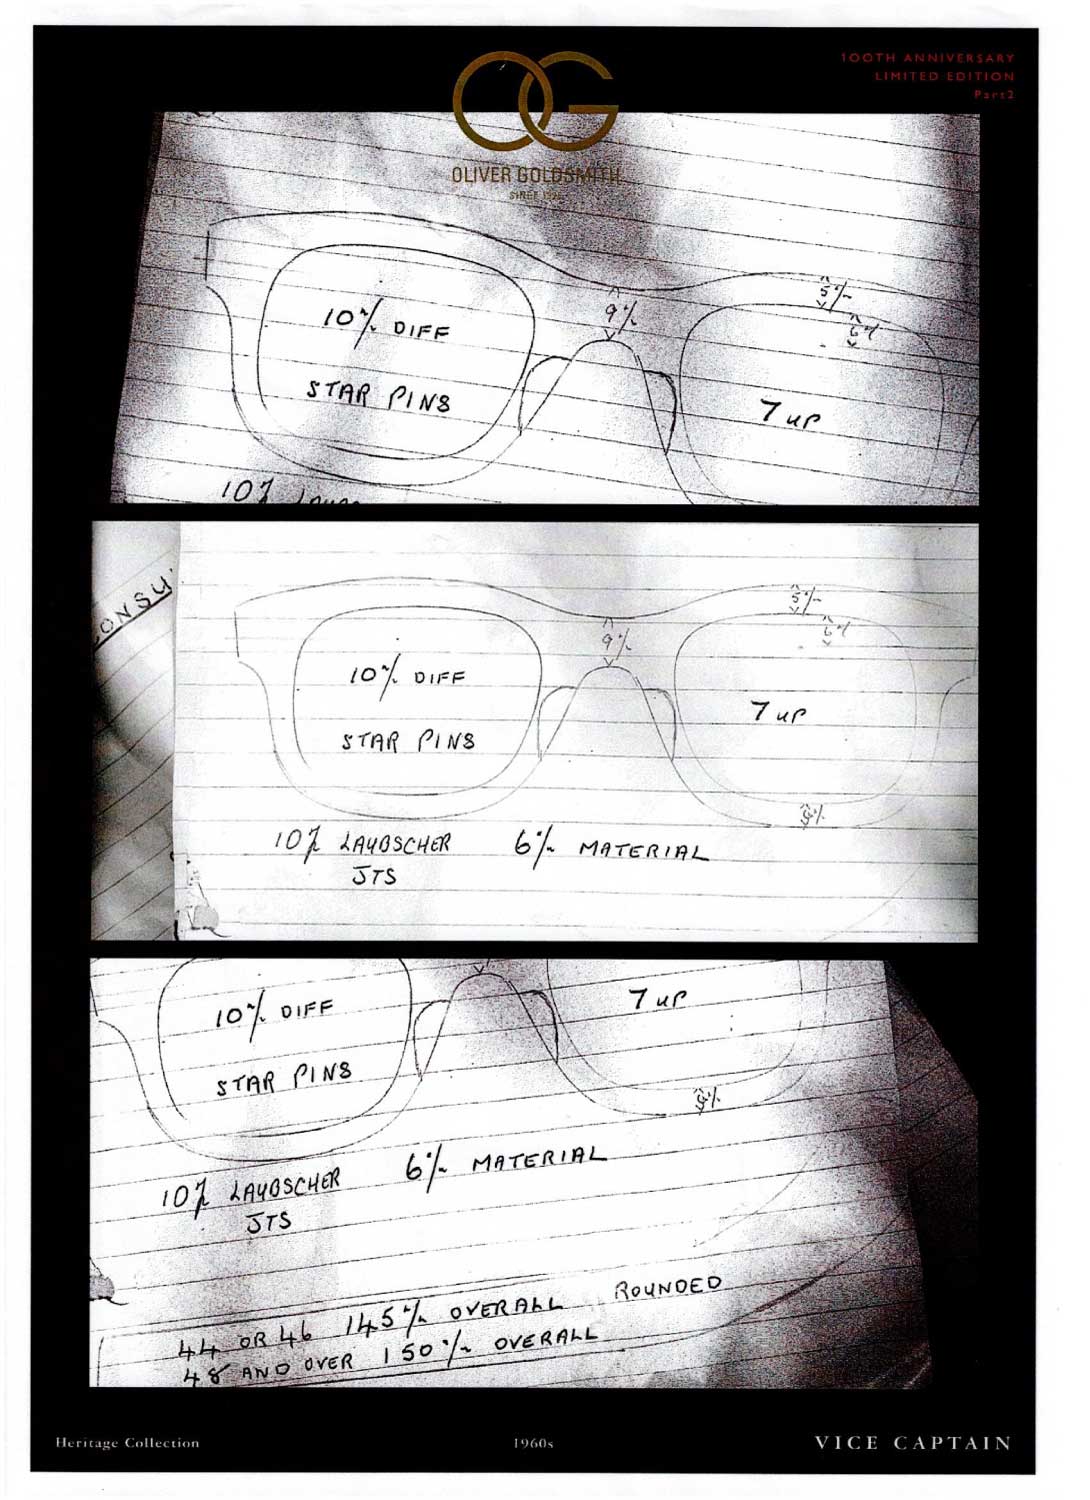 100TH ANNIVERSARY
LIMITED EDITION
Part2
OG
OLIVER GOLDSMITH
10 m/m DIFF
STAR PINS
9 m/m
5 m/m
6 m/m
7 UP
CONSU
10 m/m DIFF
STAR PINS
9 m/m
5 m/m
6 m/m
7 UP
10% LAUBSCHER
JTS
6 m/m MATERIAL
10 m/m DIFF
STAR PINS
7 UP
10% LAUBSCHER
JTS
6 m/m MATERIAL
44 OR 46 145 m/m OVERALL ROUNDED
48 AND OVER 150 m/m OVERALL
Heritage Collection
1960s
VICE CAPTAIN